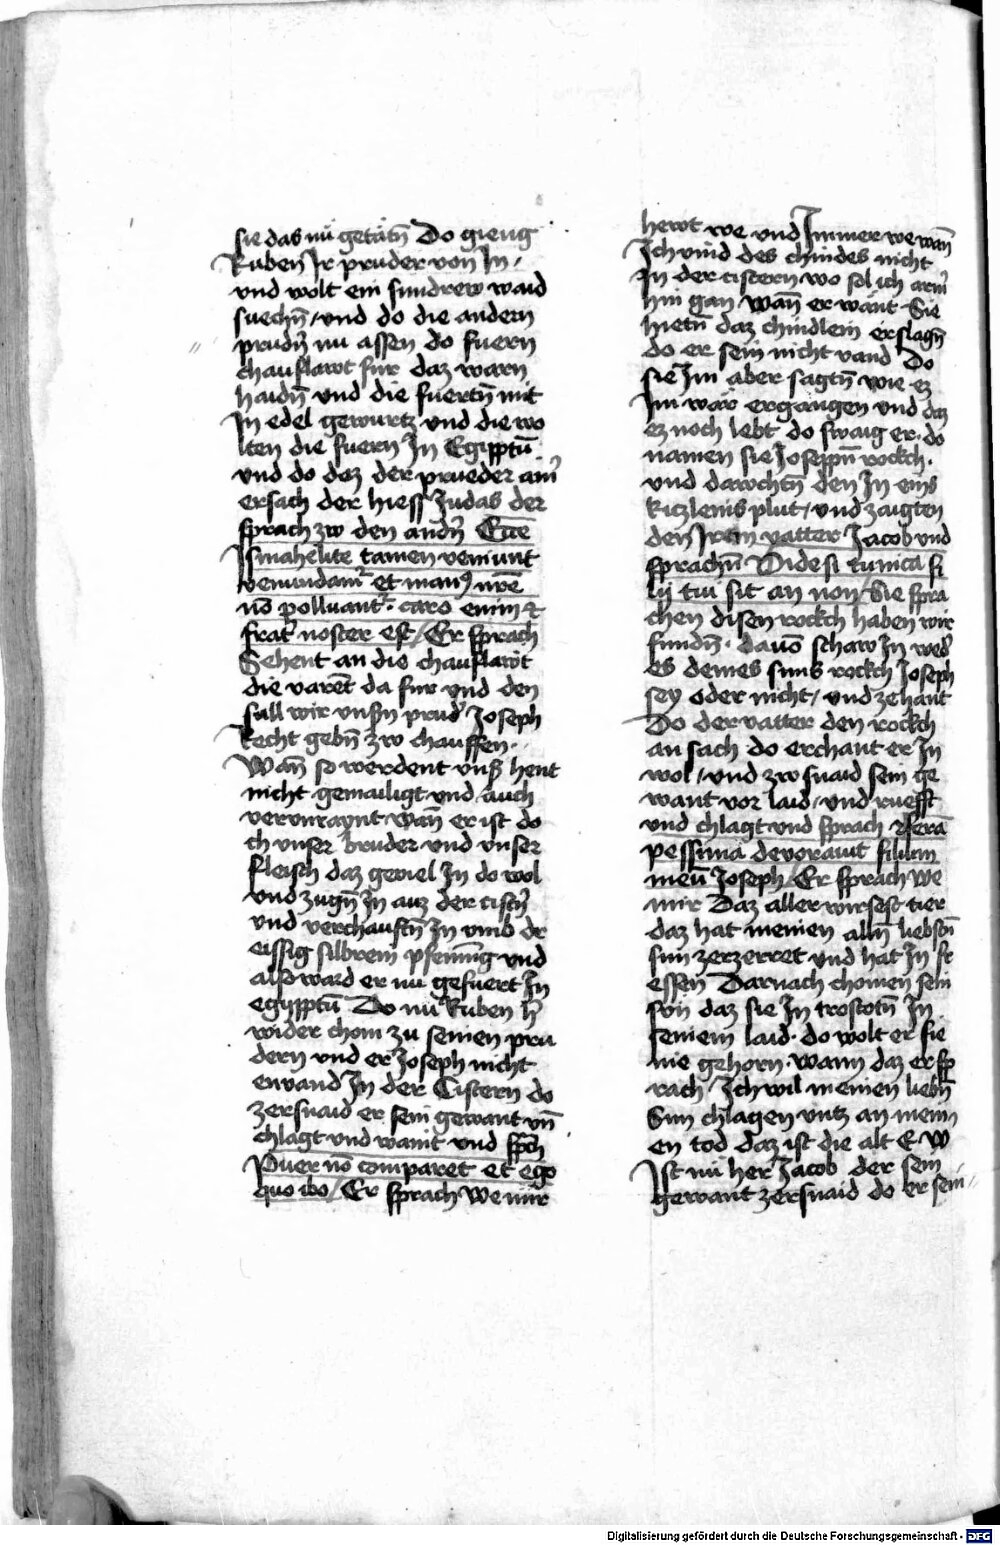 sie das nu getātn̄ Do gieng
Ruben Ir pruder von In
vnd wolt ein sundrew waid
suechn̄ / vnd do die andern
prudn̄ nu assen do fuern
chauflawt fur daz warn
haidn̄ vnd die fuertn̄ mit
In edel gewurtz vnd die wo
lten die fuern In Egipptū
vnd do daz der prueder ain̄
ersach der hiess Judas der
sprach zw den andn̄ Ecce
Ismahelite tamen veniunt
venundam̄r et man9 nr̄e
nō polluant̄r. caro enim et
frat̄ noster est / Er sprach
Sehent an die chauflawt
die varēt da fur vnd den
sull wir vnsn̄ prud̄ Joseph
Recht gebn̄ zw chauffen.
Wan̄ so werdent vns̄ hent
nicht gemailigt vnd auch
verunraynt wan̄ er ist do
ch vnser bruder vnd vnser
fleisch daz geviel In do wol
vnd zugn̄ In auz der cistn̄
vnd verchauftn̄ In vmb dr
eissig silbrein pfenning vnd
also ward er nu gefuert In
egypptū Do nu Ruben h̄
wider chom zu seinen pru
dern vnd er Joseph nicht
envand In der Cistern do
zersnaid er sein gewant vn̄
chlagt vnd waint vnd spr̄ch
Puer nō comparet et ego
quo ibo / Er sprach We mir
hewt we vnd Immer we wan̄
Ich vind des chindes nicht
In der cistern wo sol ich arm̄
hin gan wan̄ er wānt Sie
hietn̄ daz chindlein erslagn̄
do er sein nicht vand Do
sie Im aber sagtn̄ wie ez
Im wār ergangen vnd daz
ez noch lebt do swaig er. do
namen sie Josepn̄ rockch.
vnd dawchtn̄ den In eins
kiczleins plut / vnd zaigten
den Irem vatter Jacob vnd
sprachn̄ Vide si tunica fi
lij tui sit an non / Sie spra
chen disen rockch haben wir
fundn̄. dauō schaw In wed̄
es deines suns rockch Joseph
sey oder nicht / vnd zehant
Do der vatter den rockch
an sach do erchant er In
wol / vnd zw snaid sein ge
want vor laid / vnd ruefft
vnd chlagt vnd sprach ferā
pessima devorauit filium
meū Joseph / Er sprach we
mir Daz aller wirsest tier
daz hat meinen alln̄ liebstn̄
sun zerzerret vnd hat In fr
essen Darnach chomen sein
sūn daz sie In trostotn̄ In
seinem laid. do wolt er sie
nie gehorn. wann daz er sp
rach / Ich wil meinen liebn̄
Sun chlagen vntz an mein
en tod daz ist die alt E W
Ist nu her Jacob der sein
gewant zersnaid do er sein
Digitalisierung gefördert durch die Deutsche Forschungsgemeinschaft - DFG